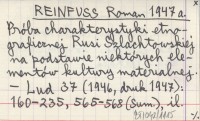 REINFUSS Roman 1947 a.
Próba charakterystyki etno-
graficznej Rusi Szlachtowskiej
na podstawie niektórych ele-
mentów kultury materialnej.
– Lud 37 (1946, druk 1947):
160-235, 565-568 (Sum.), il.